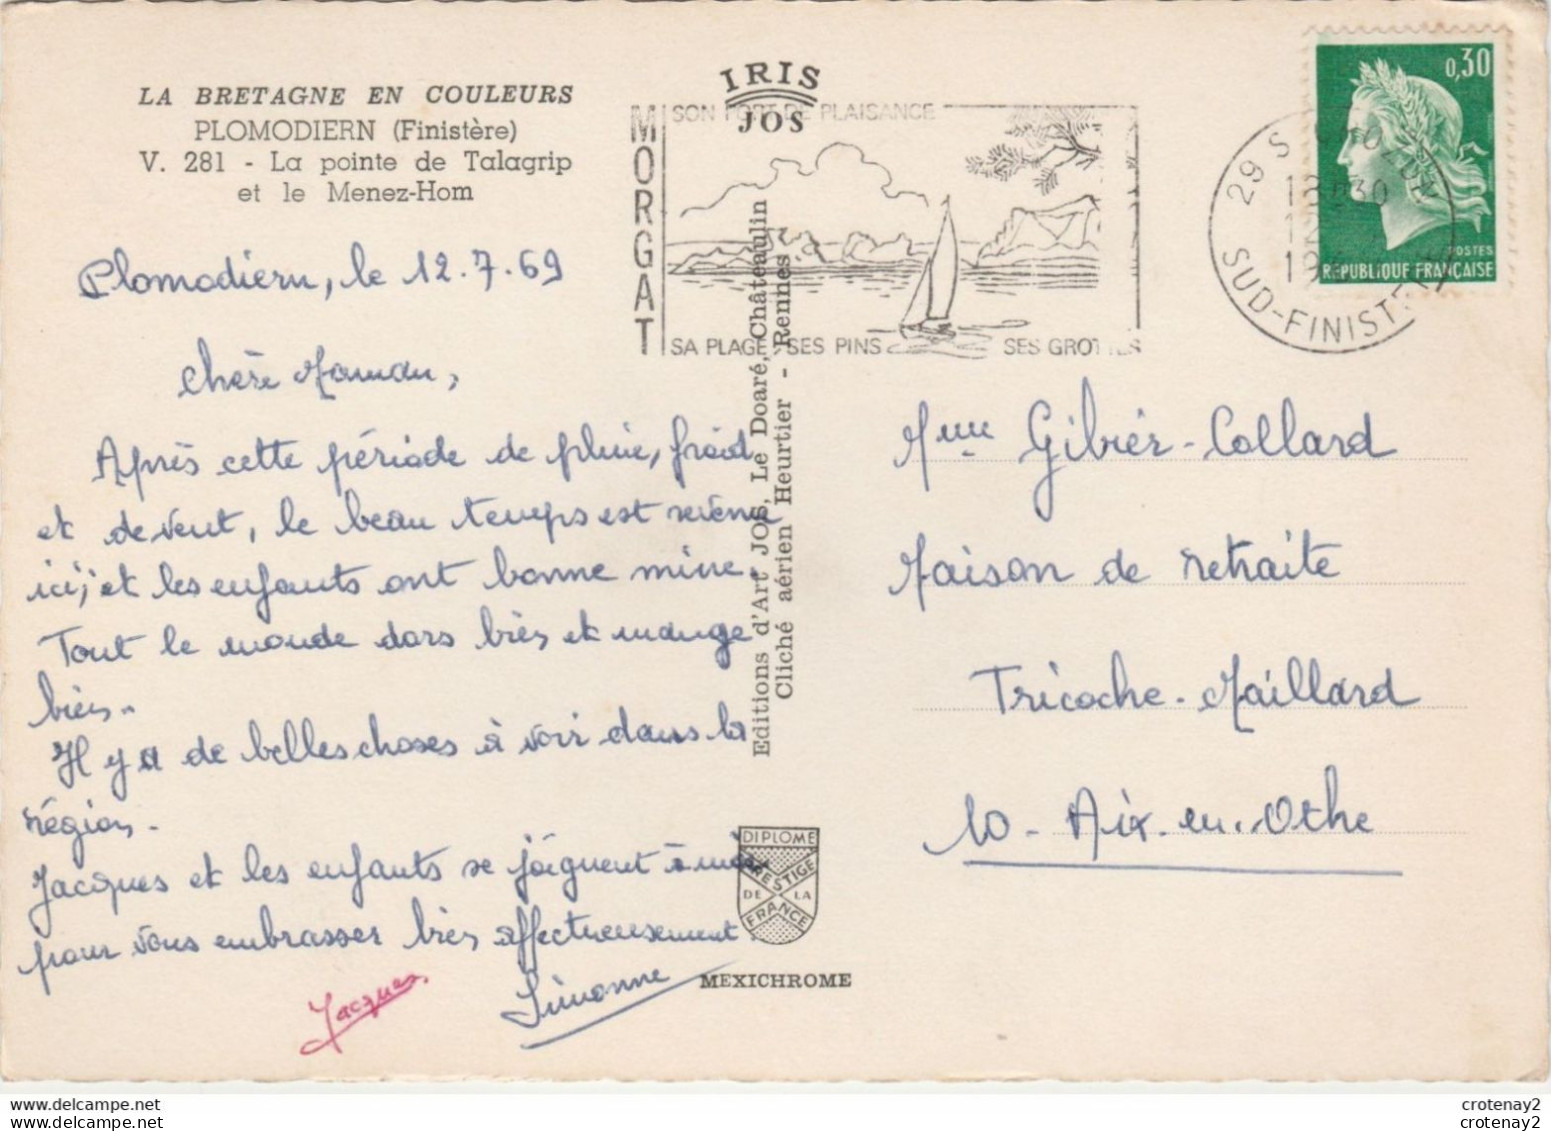 LA BRETAGNE EN COULEURS
PLOMODIERN (Finistère)
V. 281 - La pointe de Talagrip
et le Menez-Hom
IRIS
JOS
MORGAT
SON PORT DE PLAISANCE
SA PLAGE SES PINS SES GROTTES
29 S
SUD-FINISTERE
0,30
POSTES
REPUBLIQUE FRANÇAISE
Plomodiern, le 12.7.69
Chère Maman,
Après cette période de pluie, froid
et de vent, le beau temps est revenu
ici, et les enfants ont bonne mine.
Tout le monde dors bien et mange
bien.
Il y a de belles choses à voir dans la
région.
Jacques et les enfants se joignent à moi
pour vous embrasser bien affectueusement.
Jacques
Simonne
Editions d'Art JOS, Le Doaré, Châteaulin
Cliché aérien Heurtier - Rennes
DIPLOME
PRESTIGE
DE LA
FRANCE
MEXICHROME
Mme Gibier-Collard
Maison de retraite
Tricoche-Maillard
10 - Aix-en-Othe
www.delcampe.net
www.delcampe.net
crotenay2
crotenay2